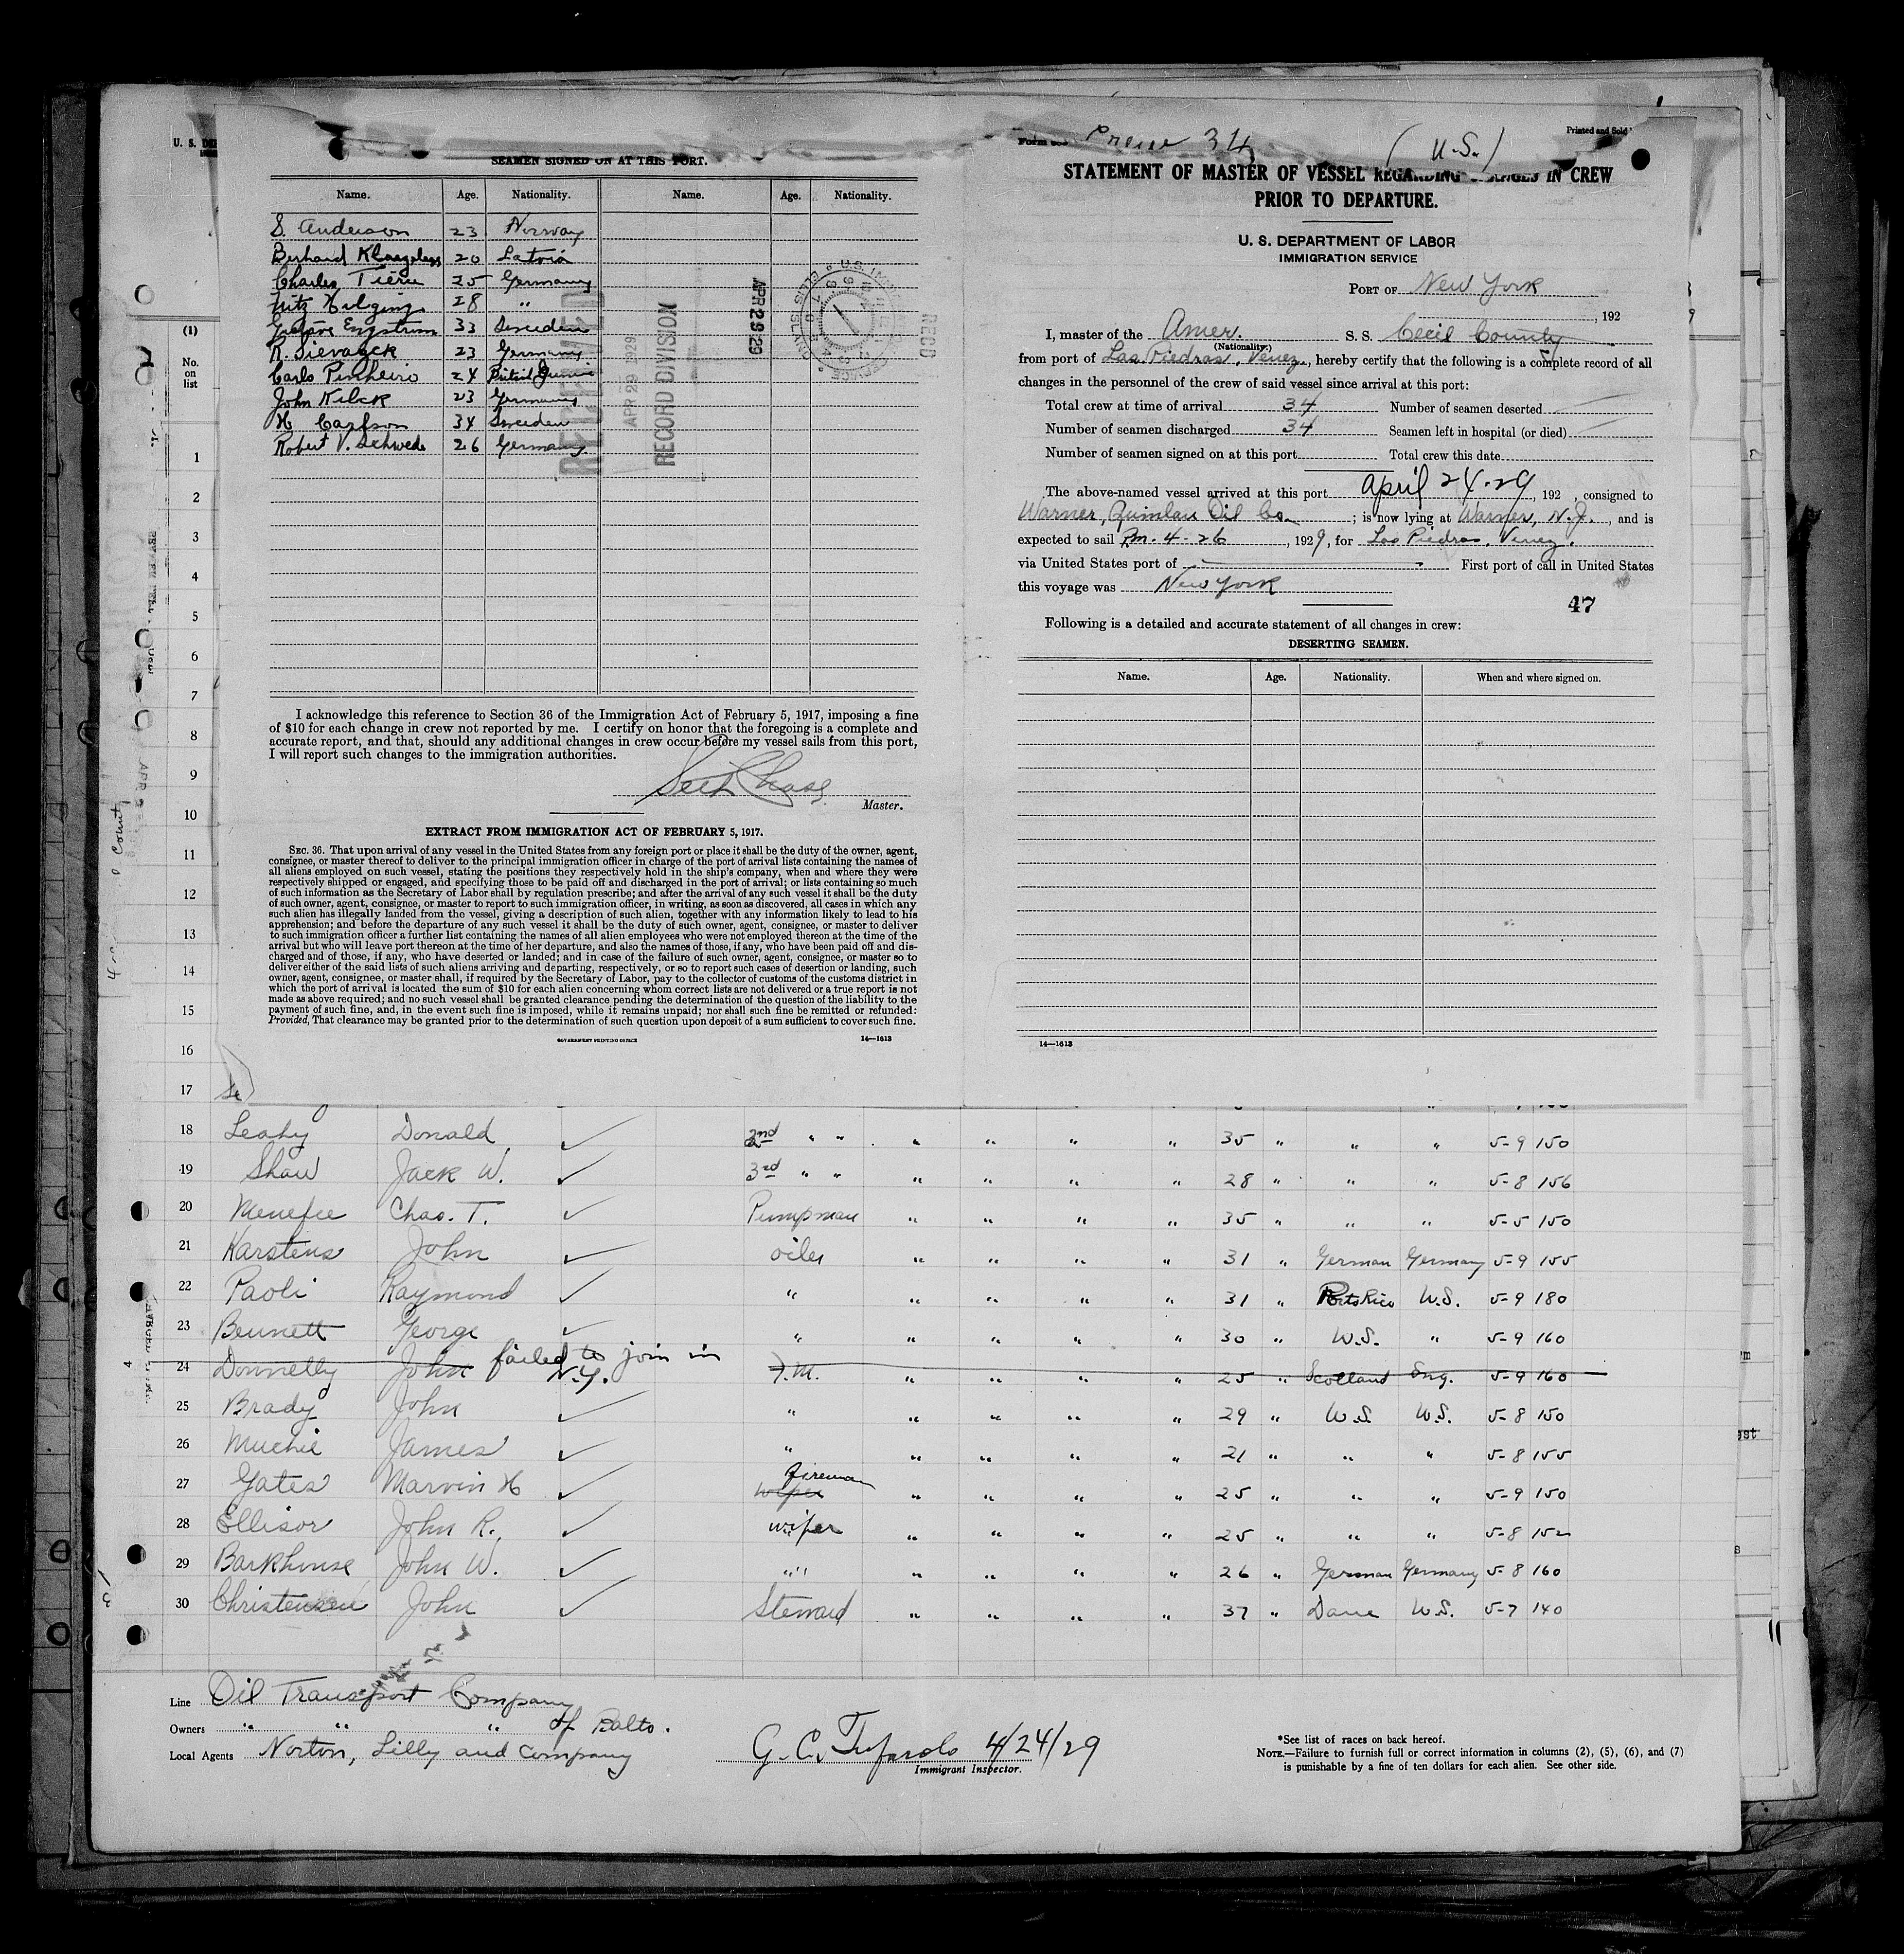 U. S. DE
SEAMEN SIGNED ON AT THIS PORT.
Name. Age. Nationality. Name. Age. Nationality.
S. Anderson 23 Norway
20 Latvia
Charles 25 Germany
Fritz 28 "
Engstrom 33 Sweden
R. 23 Germany
Carlo Pinheiro 24
John 23 Germany
H Carlson 34 Sweden
Robert V. Schwede 26 Germany
RECEIVED
APR 29 1929
RECORD DIVISION
APR 29 29
REC'D
I acknowledge this reference to Section 36 of the Immigration Act of February 5, 1917, imposing a fine
of $10 for each change in crew not reported by me. I certify on honor that the foregoing is a complete and
accurate report, and that, should any additional changes in crew occur before my vessel sails from this port,
I will report such changes to the immigration authorities.
Seth Chase
Master.
EXTRACT FROM IMMIGRATION ACT OF FEBRUARY 5, 1917.
SEC. 36. That upon arrival of any vessel in the United States from any foreign port or place it shall be the duty of the owner, agent,
consignee, or master thereof to deliver to the principal immigration officer in charge of the port of arrival lists containing the names of
all aliens employed on such vessel, stating the positions they respectively hold in the ship's company, when and where they were
respectively shipped or engaged, and specifying those to be paid off and discharged in the port of arrival; or lists containing so much
of such information as the Secretary of Labor shall by regulation prescribe; and after the arrival of any such vessel it shall be the duty
of such owner, agent, consignee, or master to report to such immigration officer, in writing, as soon as discovered, all cases in which any
such alien has illegally landed from the vessel, giving a description of such alien, together with any information likely to lead to his
apprehension; and before the departure of any such vessel it shall be the duty of such owner, agent, consignee, or master to deliver
to such immigration officer a further list containing the names of all alien employees who were not employed thereon at the time of the
arrival but who will leave port thereon at the time of her departure, and also the names of those, if any, who have been paid off and dis-
charged and of those, if any, who have deserted or landed; and in case of the failure of such owner, agent, consignee, or master so to
deliver either of the said lists of such aliens arriving and departing, respectively, or so to report such cases of desertion or landing, such
owner, agent, consignee, or master shall, if required by the Secretary of Labor, pay to the collector of customs of the customs district in
which the port of arrival is located the sum of $10 for each alien concerning whom correct lists are not delivered or a true report is not
made as above required; and no such vessel shall be granted clearance pending the determination of the question of the liability to the
payment of such fine, and, in the event such fine is imposed, while it remains unpaid; nor shall such fine be remitted or refunded:
Provided, That clearance may be granted prior to the determination of such question upon deposit of a sum sufficient to cover such fine.
GOVERNMENT PRINTING OFFICE 14—1613
Form 34 (U.S.) Printed and Sold
STATEMENT OF MASTER OF VESSEL REGARDING CHANGES IN CREW
PRIOR TO DEPARTURE.
U. S. DEPARTMENT OF LABOR
IMMIGRATION SERVICE
PORT OF New York
, 192
I, master of the Amer. S. S. Cecil County
(Nationality.)
from port of Las Piedras, Venez., hereby certify that the following is a complete record of all
changes in the personnel of the crew of said vessel since arrival at this port:
Total crew at time of arrival 34 Number of seamen deserted
Number of seamen discharged 34 Seamen left in hospital (or died)
Number of seamen signed on at this port Total crew this date
The above-named vessel arrived at this port April 24-29, 192 , consigned to
Warner, Quinlan Oil Co. ; is now lying at Warner, N.J., and is
expected to sail Pm. 4-26, 1929, for Las Piedras, Venez.
via United States port of First port of call in United States
this voyage was New York
47
Following is a detailed and accurate statement of all changes in crew:
DESERTING SEAMEN.
Name. Age. Nationality. When and where signed on.
14—1613
(1)
No.
on
list
1
2
3
4
5
6
7
8
9
10
11
12
13
14
15
16
17
18 Leahy Donald ✓ 2nd " " " " " " 35 " " " 5-9 150
19 Shaw Jack W. ✓ 3rd " " " " " " 28 " " " 5-8 156
20 Menefee Chas. T. ✓ Pumpman " " " " 35 " " " 5-5 150
21 Karstens John ✓ oiler " " " " 31 " German Germany 5-9 155
22 Paoli Raymond ✓ " " " " " 31 " Porto Rico U.S. 5-9 180
23 Bennett George ✓ " " " " " 30 " U.S. " 5-9 160
24 Donnelly John failed to join in N.Y. F.M. " " " " 25 " Scotland Eng. 5-9 160
25 Brady John ✓ " " " " " 29 " U.S. U.S. 5-8 150
26 Muchie James ✓ " " " " " 21 " " " 5-8 155
27 Gates Marvin H ✓ wiper fireman " " " " 25 " " " 5-9 150
28 Ellisor John R. ✓ wiper " " " " 25 " " " 5-8 152
29 Barkhouse John W. ✓ " " " " " " 26 " German Germany 5-8 160
30 Christensen John ✓ Steward " " " " 37 " Dane U.S. 5-7 140
Line Oil Transport Company
Owners " " " of Balto.
Local Agents Norton, Lilly and Company
G. C. Tufarolo 4/24/29
Immigrant Inspector.
*See list of races on back hereof.
NOTE.—Failure to furnish full or correct information in columns (2), (5), (6), and (7)
is punishable by a fine of ten dollars for each alien. See other side.